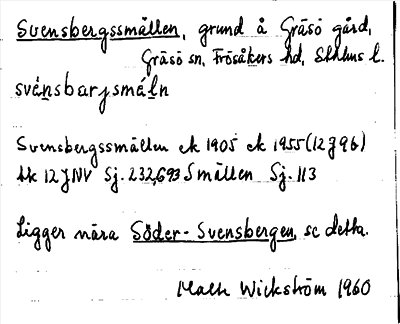 Svensbergssmällen, grund å Gräsö gård,
Gräsö sn, Frösåkers hd, Sthlms l.
svénsbarjsmäln
Svensbergssmällen ek 1905 ek 1955 (12 J 9 b)
sk 12 J NV Sj. 232,693 Smällen Sj. 113
Ligger nära Söder-Svensbergen, se detta.
Wickström 1960